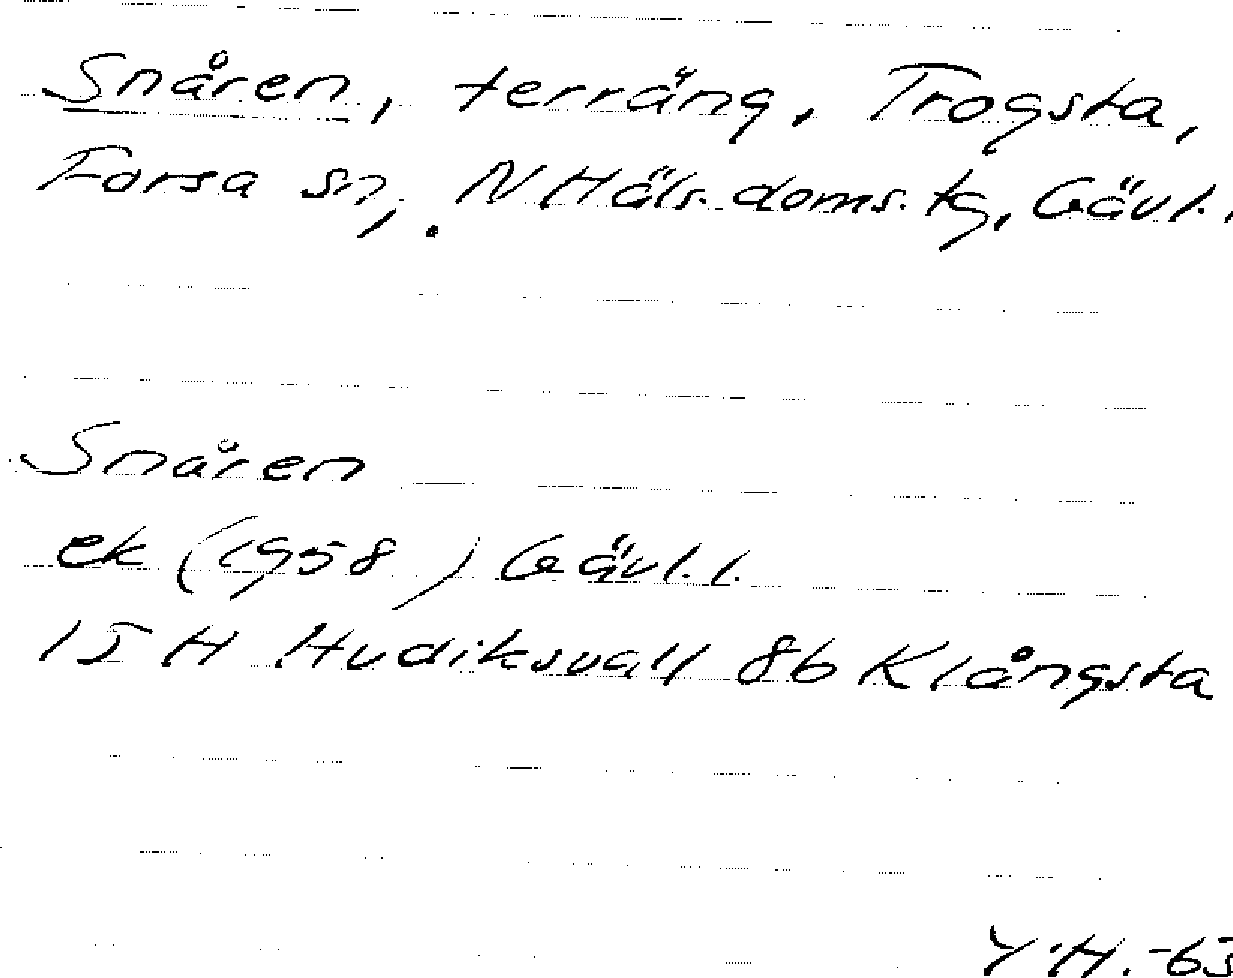 Snåren, terräng, Trogsta,
Forsa sn, N Häls. doms. tg, Gävl.
Snåren
ek (1958) Gävl. l.
15H Hudiksvall 8b Klångsta
Y.H. -63